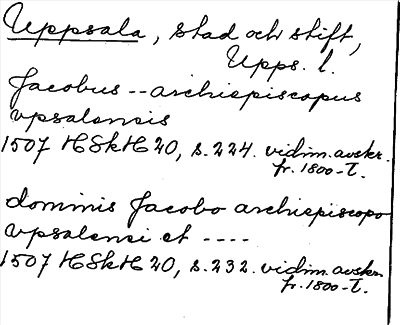 Uppsala, stad och stift,
Upps. l.
Jacobus -- archiepiscopus
vpsalensis
1507 HSkH 20, s. 224. vidim. avskr.
fr. 1800-t.
dominis Jacobo archiepiscopo
vpsalensi et ----
1507 HSkH 20, s. 232. vidim. avskr.
fr. 1800-t.